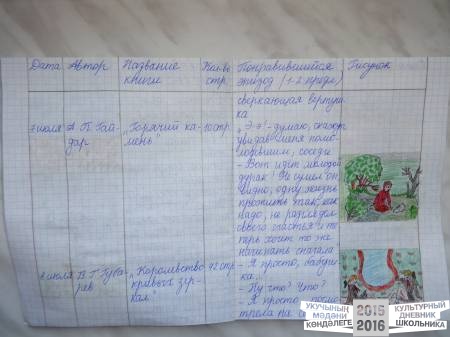 Дата Автор Название книги Кол-во стр. Понравившийся эпизод (1-2 предл.) Рисунок
сверкающая
7 июля А. П. Гайдар "Горячий камень" 10 стр.
"Э-э! - думаю, скажут
увидав меня помо-
соседи
- Вот идёт молодой
дурак! Не сумел он,
видно, одну жизнь
прожить так, как
надо, не разглядел
своего счастья и те-
перь хочет то же
начинать сначала.
8 июля В. Г. Губарев "Королевство кривых зеркал" 42 стр.
- Я просто, бабуш-
ка...
- Ну что? Что?
- Я просто посмо-
трела на
УКУЧЫНЫҢ
МӘДӘНИ
КӨНДӘЛЕГЕ
2015
2016
КУЛЬТУРНЫЙ
ДНЕВНИК
ШКОЛЬНИКА